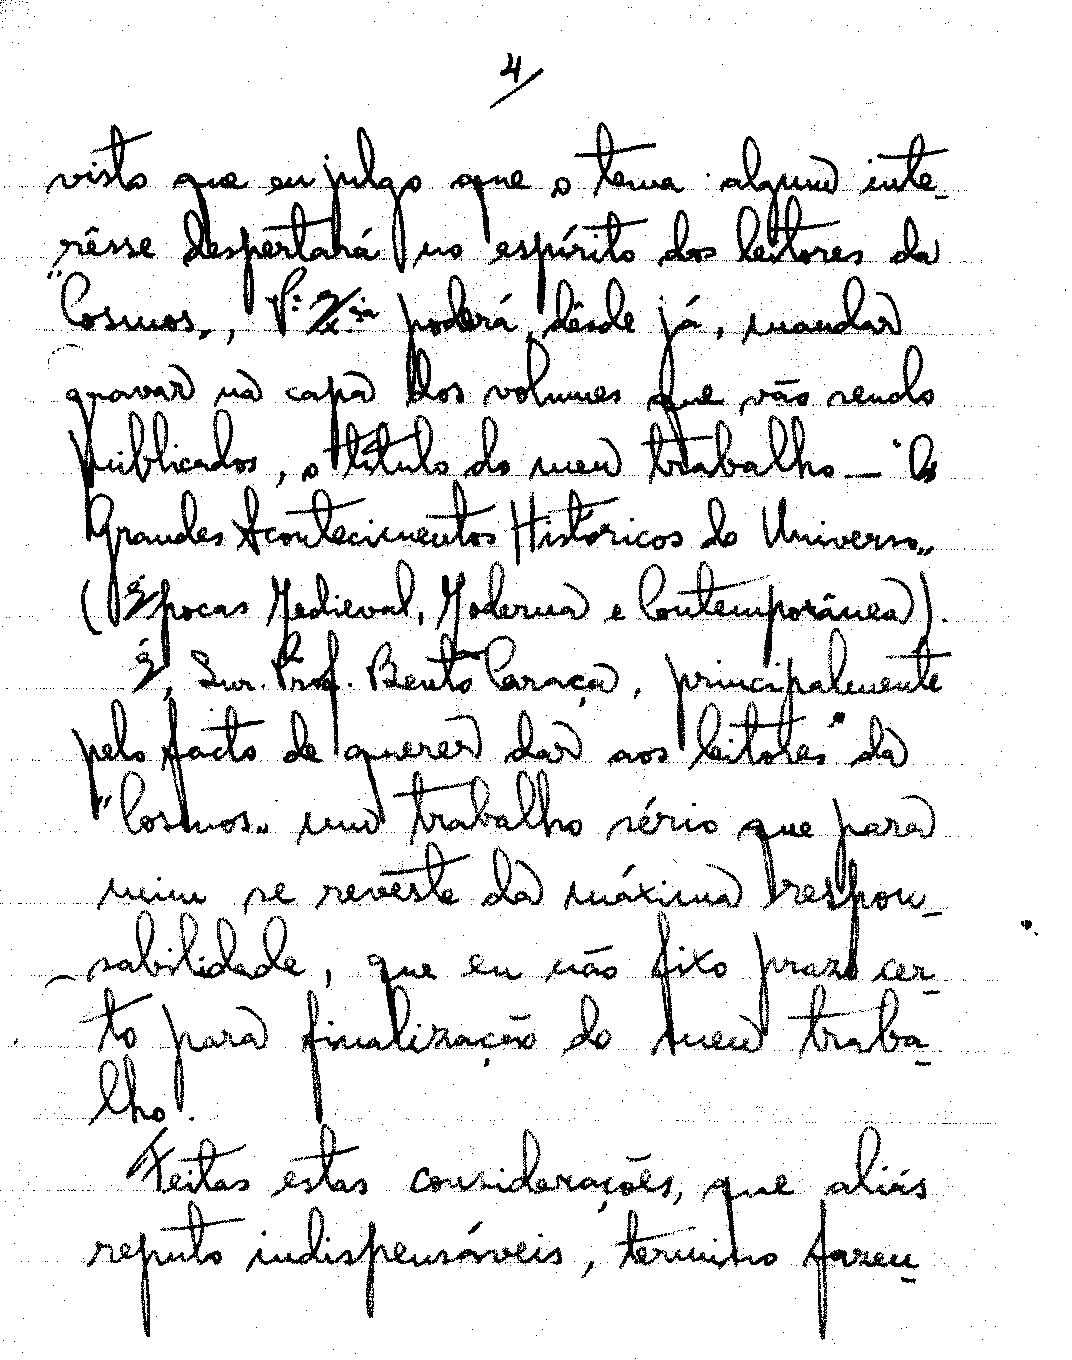 4/
visto que eu julgo que o tema algum inte-
rêsse despertará no espírito dos leitores da
"Cosmos", V.ª Ex.cia poderá, dêsde já, mandar
gravar na capa dos volumes que vão sendo
publicados, o título do meu trabalho — "Os
Grandes Acontecimentos Históricos do Universo"
(Épocas Medieval, Moderna e Contemporânea).
É, Snr. Prof. Bento Caraça, principalmente
pelo facto de querer dar aos leitores da
"Cosmos" um trabalho sério que para
mim se reveste da máxima respon-
sabilidade, que eu não fixo prazo cer-
to para finalização do meu traba-
lho.
Feitas estas considerações, que aliás
reputo indispensáveis, termino fazen-